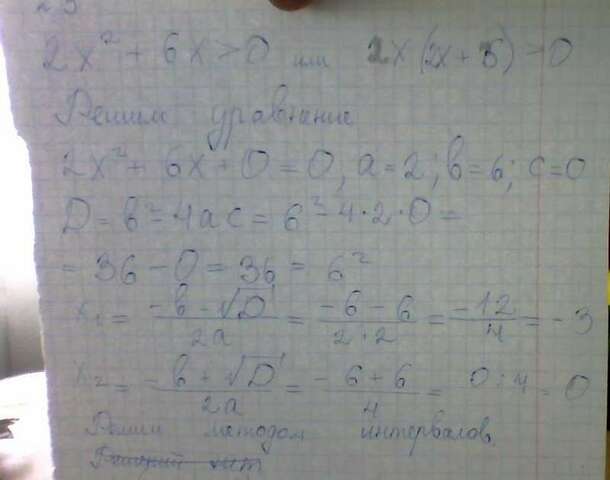 2x² + 6x > 0 или 2x(2x + 5) > 0
Решим уравнение
2x² + 6x + 0 = 0, a = 2; в = 6; с = 0
D = в² - 4ac = 6² - 4 · 2 · 0 =
= 36 - 0 = 36 = 6²
x₁ = (-в - √D)/2a = (-6 - 6)/(2 · 2) = -12/4 = -3
x₂ = (-в + √D)/2a = (-6 + 6)/4 = 0 : 4 = 0
Решим методом интервалов